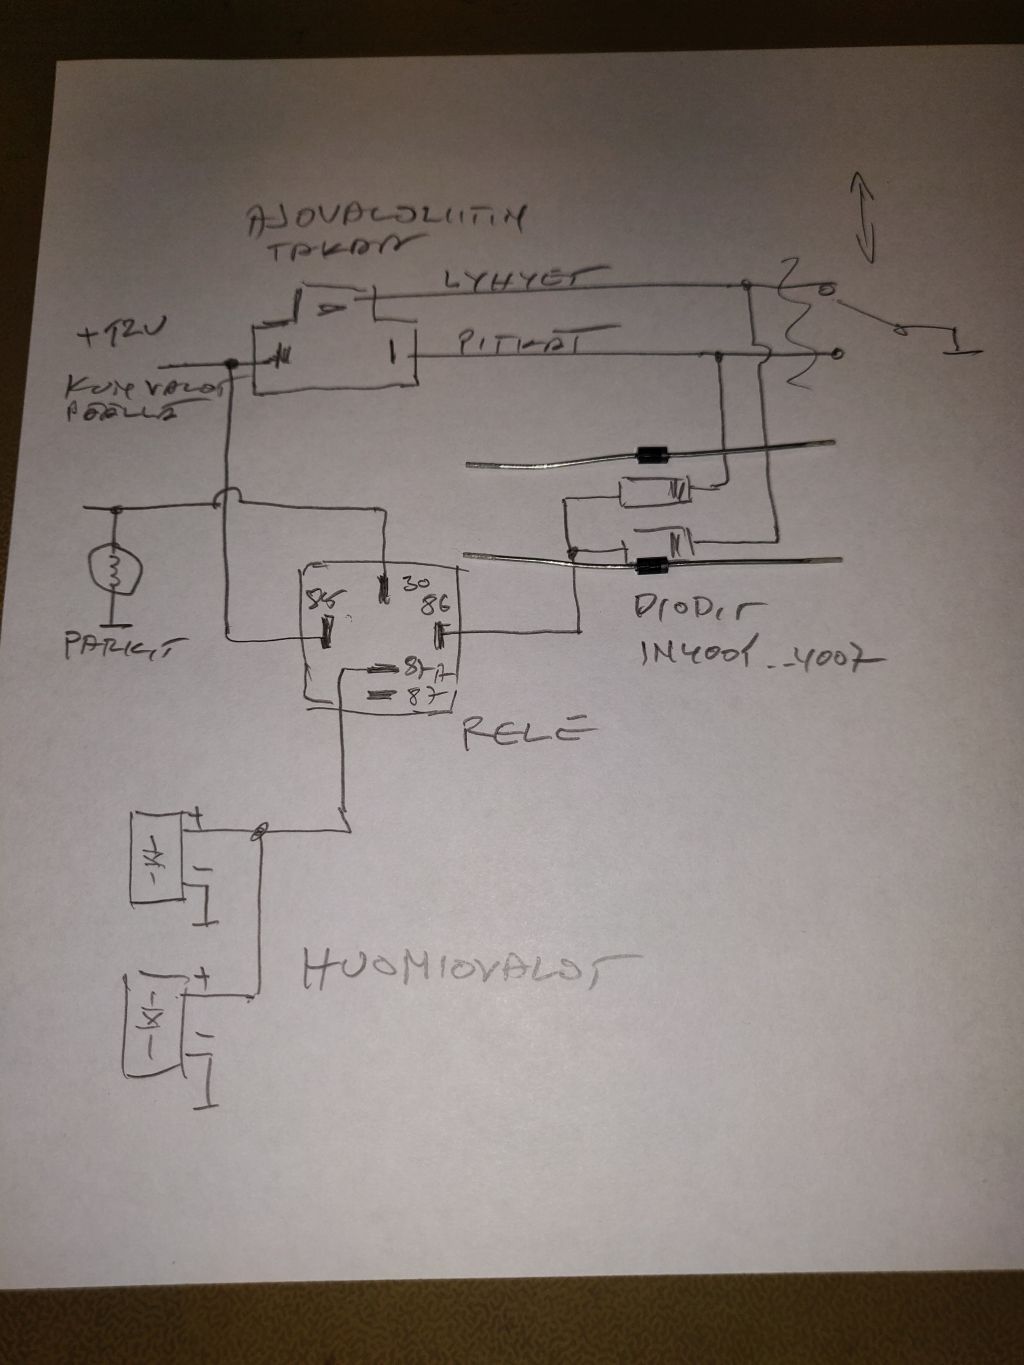 AJOVALOLIITIN
TAKAA
LYHYET
+12V
PITKÄT
KUN VALOT
PÄÄLLÄ
30
85
86
PARKIT
DIODIT
1N4001...4007
87A
87
RELE
+
-
HUOMIOVALOT
+
-